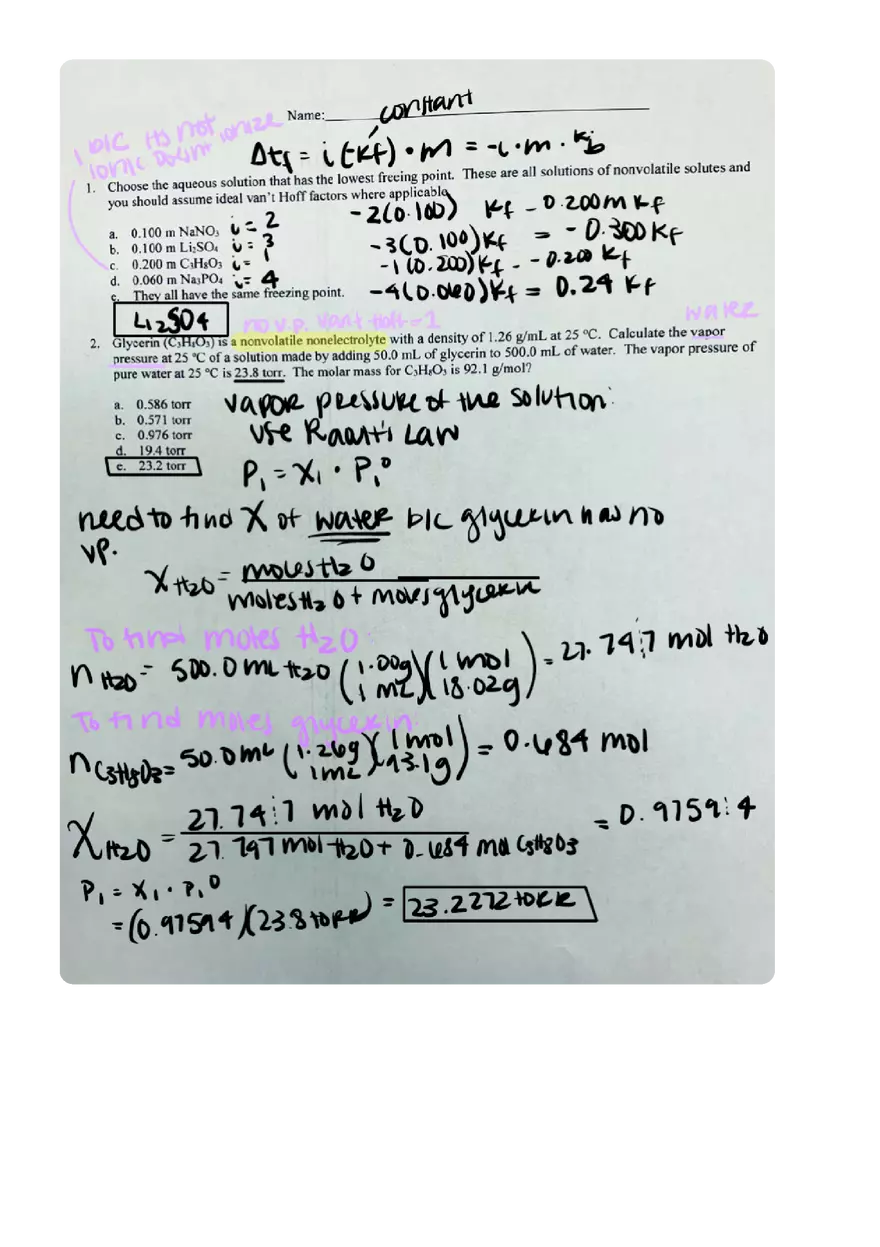 Name: constant
1 b/c its not
ionic Doesn't ionize
Δtf = i(-kf) · m = -i · m · kb
1. Choose the aqueous solution that has the lowest freezing point. These are all solutions of nonvolatile solutes and
you should assume ideal van't Hoff factors where applicable.
a. 0.100 m NaNO₃ i = 2 -2(0.100) kf - 0.200m kf
b. 0.100 m Li₂SO₄ i = 3 -3(0.100)kf = -0.300 kf
c. 0.200 m C₃H₈O₃ i = 1 -1(0.200)kf - -0.200 kf
d. 0.060 m Na₃PO₄ i = 4 -4(0.060)kf = 0.24 kf
e. They all have the same freezing point.
Li2SO4
no v.p. vant hoff = 1 water
2. Glycerin (C₃H₈O₃) is a nonvolatile nonelectrolyte with a density of 1.26 g/mL at 25 °C. Calculate the vapor
pressure at 25 °C of a solution made by adding 50.0 mL of glycerin to 500.0 mL of water. The vapor pressure of
pure water at 25 °C is 23.8 torr. The molar mass for C₃H₈O₃ is 92.1 g/mol?
a. 0.586 torr
b. 0.571 torr
c. 0.976 torr
d. 19.4 torr
e. 23.2 torr
vapor pressure of the solution:
use Raoult's Law
P₁ = X₁ · P₁°
need to find X of water b/c glycerin has no
vp.
X H2O = moles H2O
moles H2O + moles glycerin
To find moles H2O:
n H2O = 500.0 mL H2O (1.00g/1 mL)(1 mol/18.02g) = 27.747 mol H2O
To find moles glycerin:
n C3H8O3 = 50.0 mL (1.26g/1mL)(1 mol/93.1g) = 0.684 mol
X H2O = 27.747 mol H2O = 0.97594
27.747 mol H2O + 0.684 mol C3H8O3
P₁ = X₁ · P₁°
= (0.97594)(23.8 torr) = 23.2272 torr